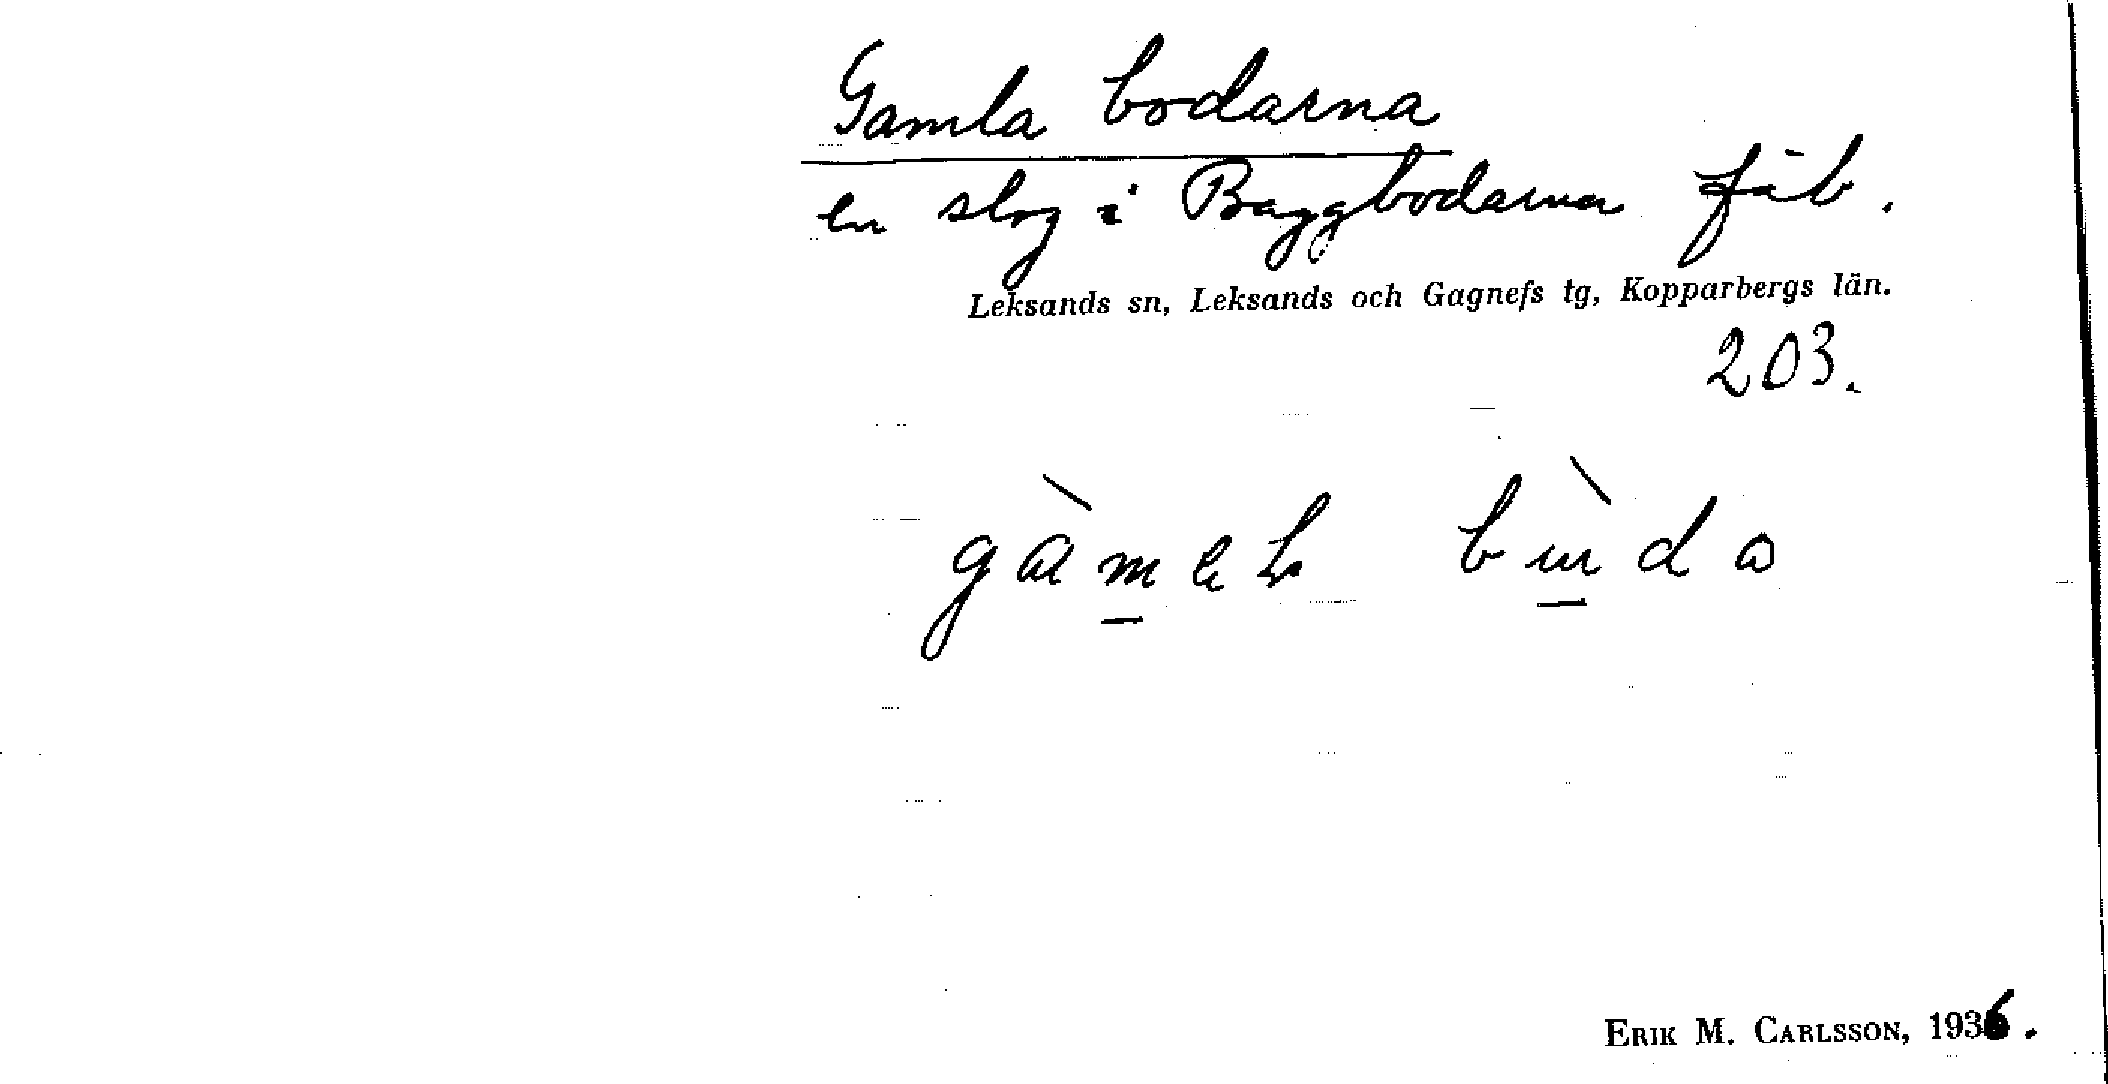 Gamla bodarna
en slog i Baggbodarna fäb.
Leksands sn, Leksands och Gagnefs tg, Kopparbergs län.
203.
ERIK M. CARLSSON, 1936.